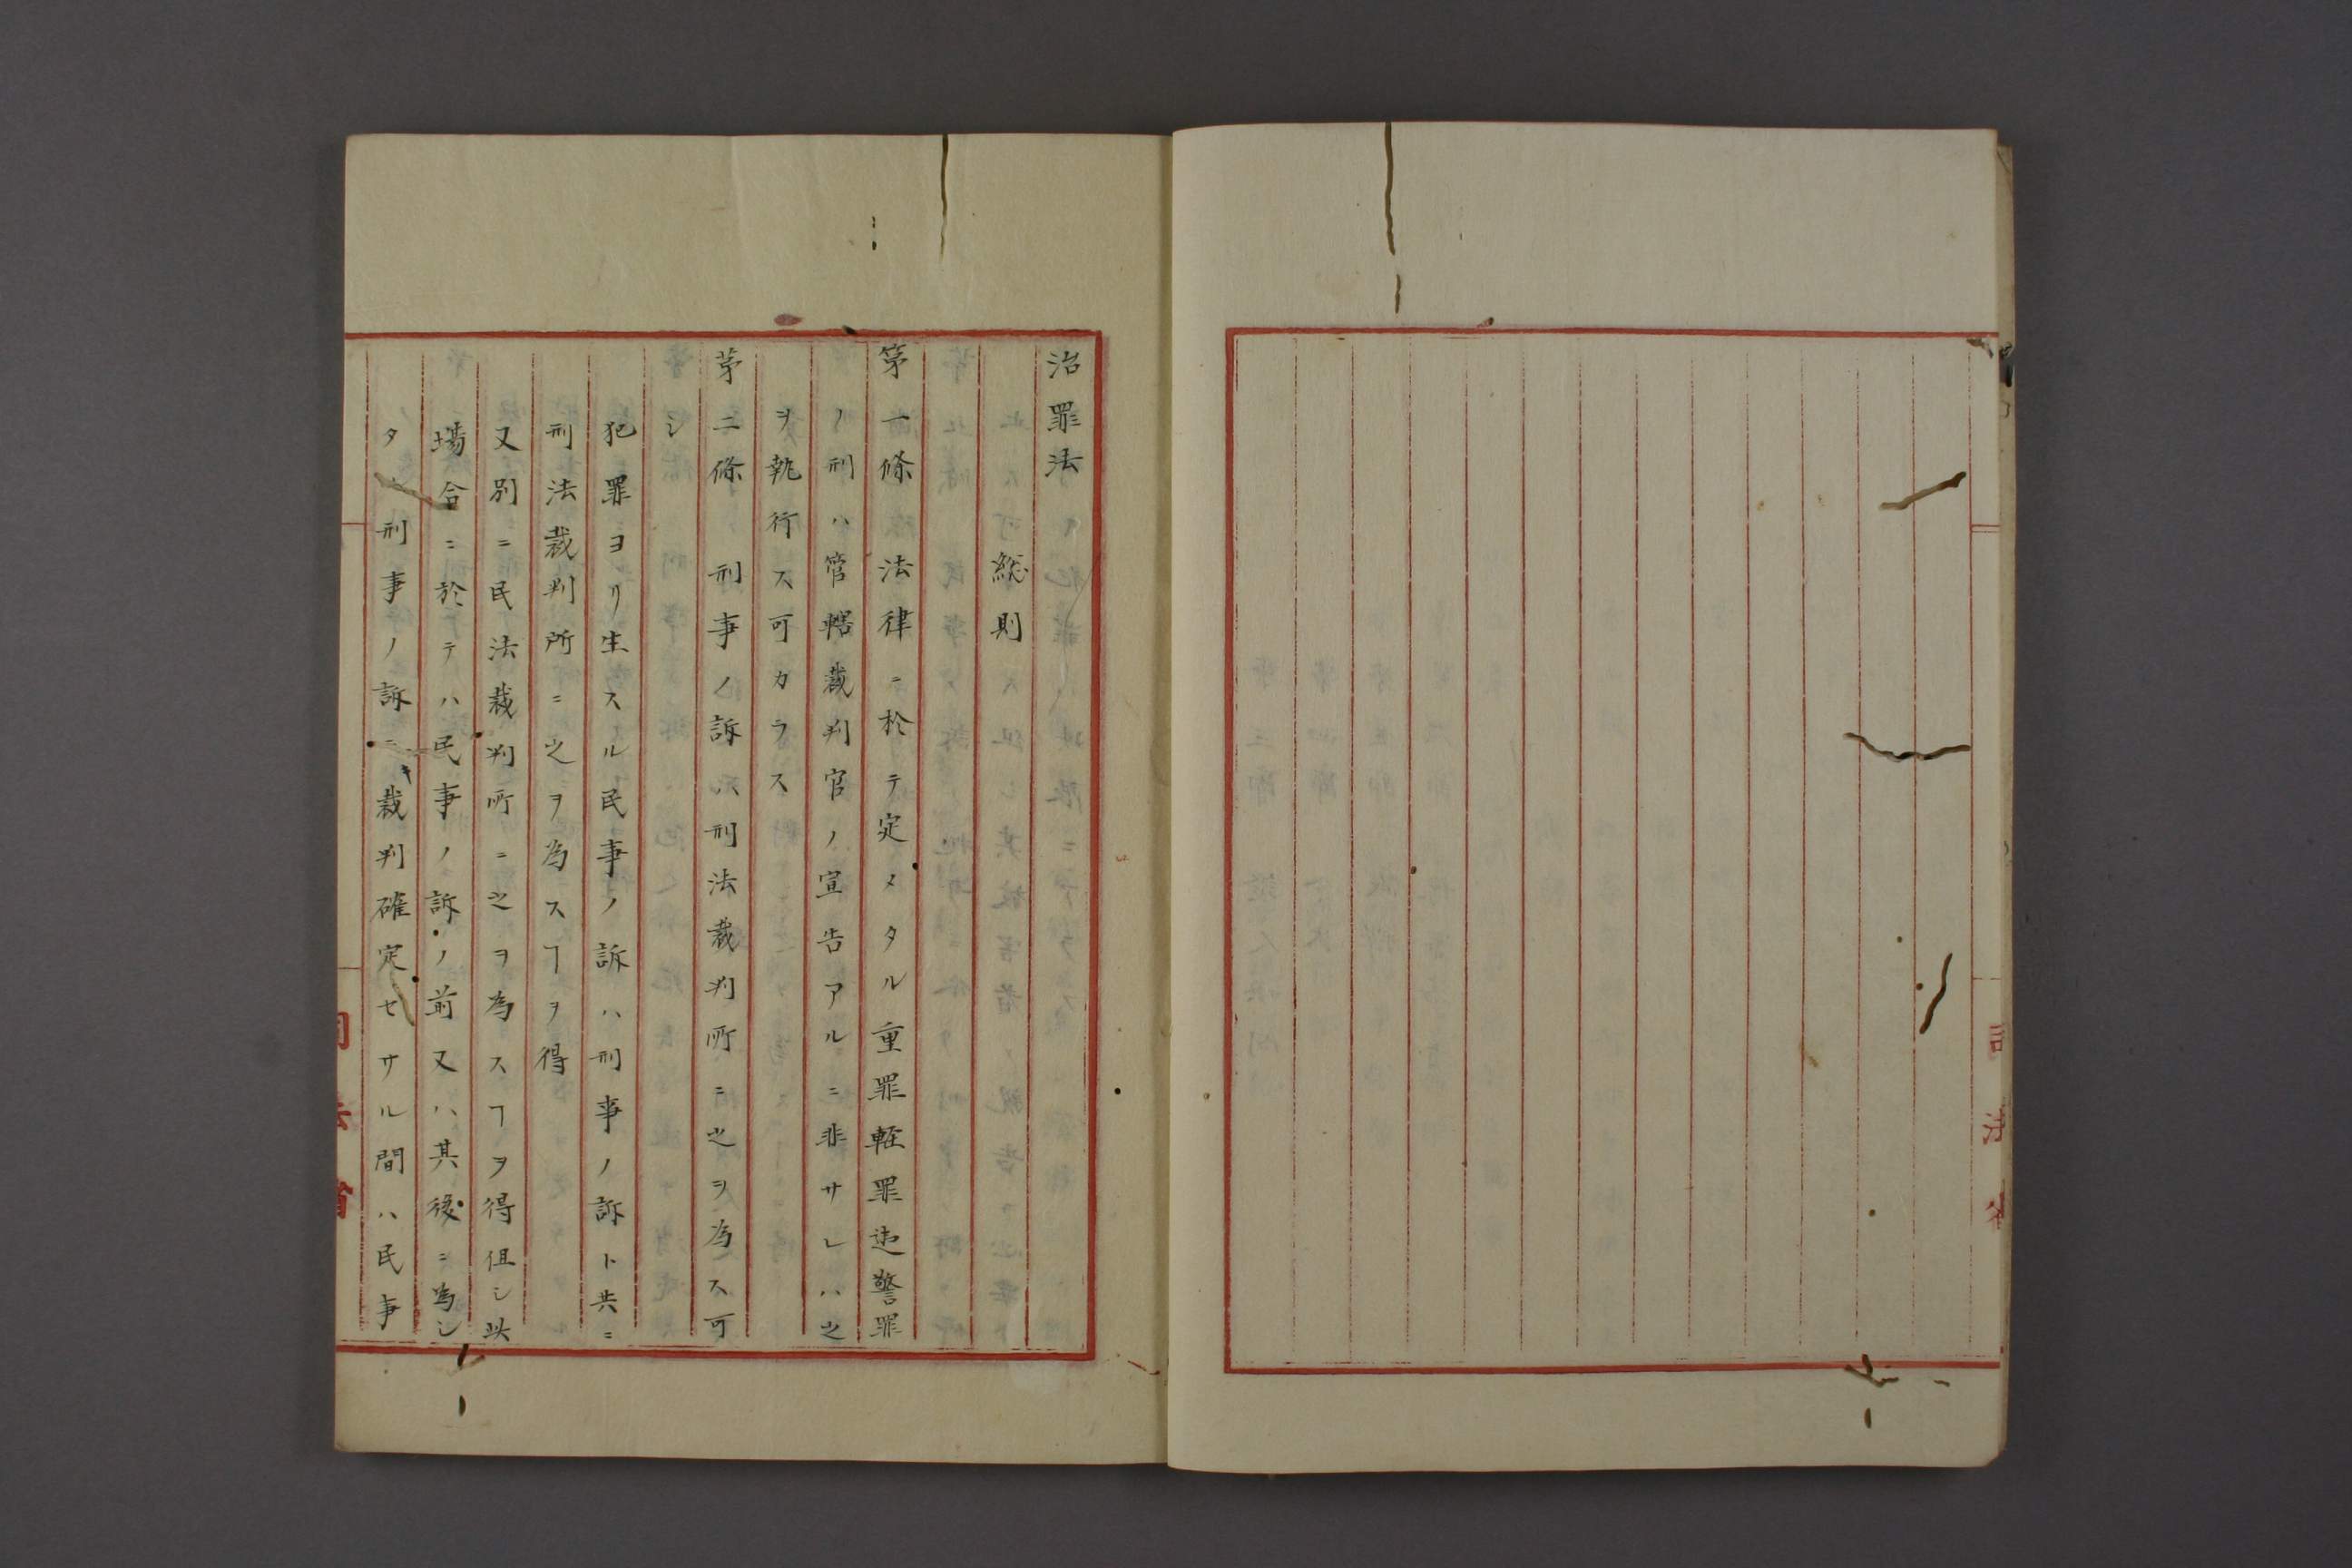 治罪法
總則
第一條 法律ニ於テ定メタル重罪輕罪違警罪
ノ刑ハ管轄裁判官ノ宣告アルニ非サレハ之
ヲ執行ス可カラス
第二條 刑事ノ訴ハ刑法裁判所ニ之ヲ為ス可
シ
犯罪ヨリ生スル民事ノ訴ハ刑事ノ訴ト共ニ
刑法裁判所ニ之ヲ為スヿヲ得
又別ニ民法裁判所ニ之ヲ為スヿヲ得但シ此
場合ニ於テハ民事ノ訴ノ前又ハ其後ニ為シ
タル刑事ノ訴ニ裁判確定セサル間ハ民事
司法省